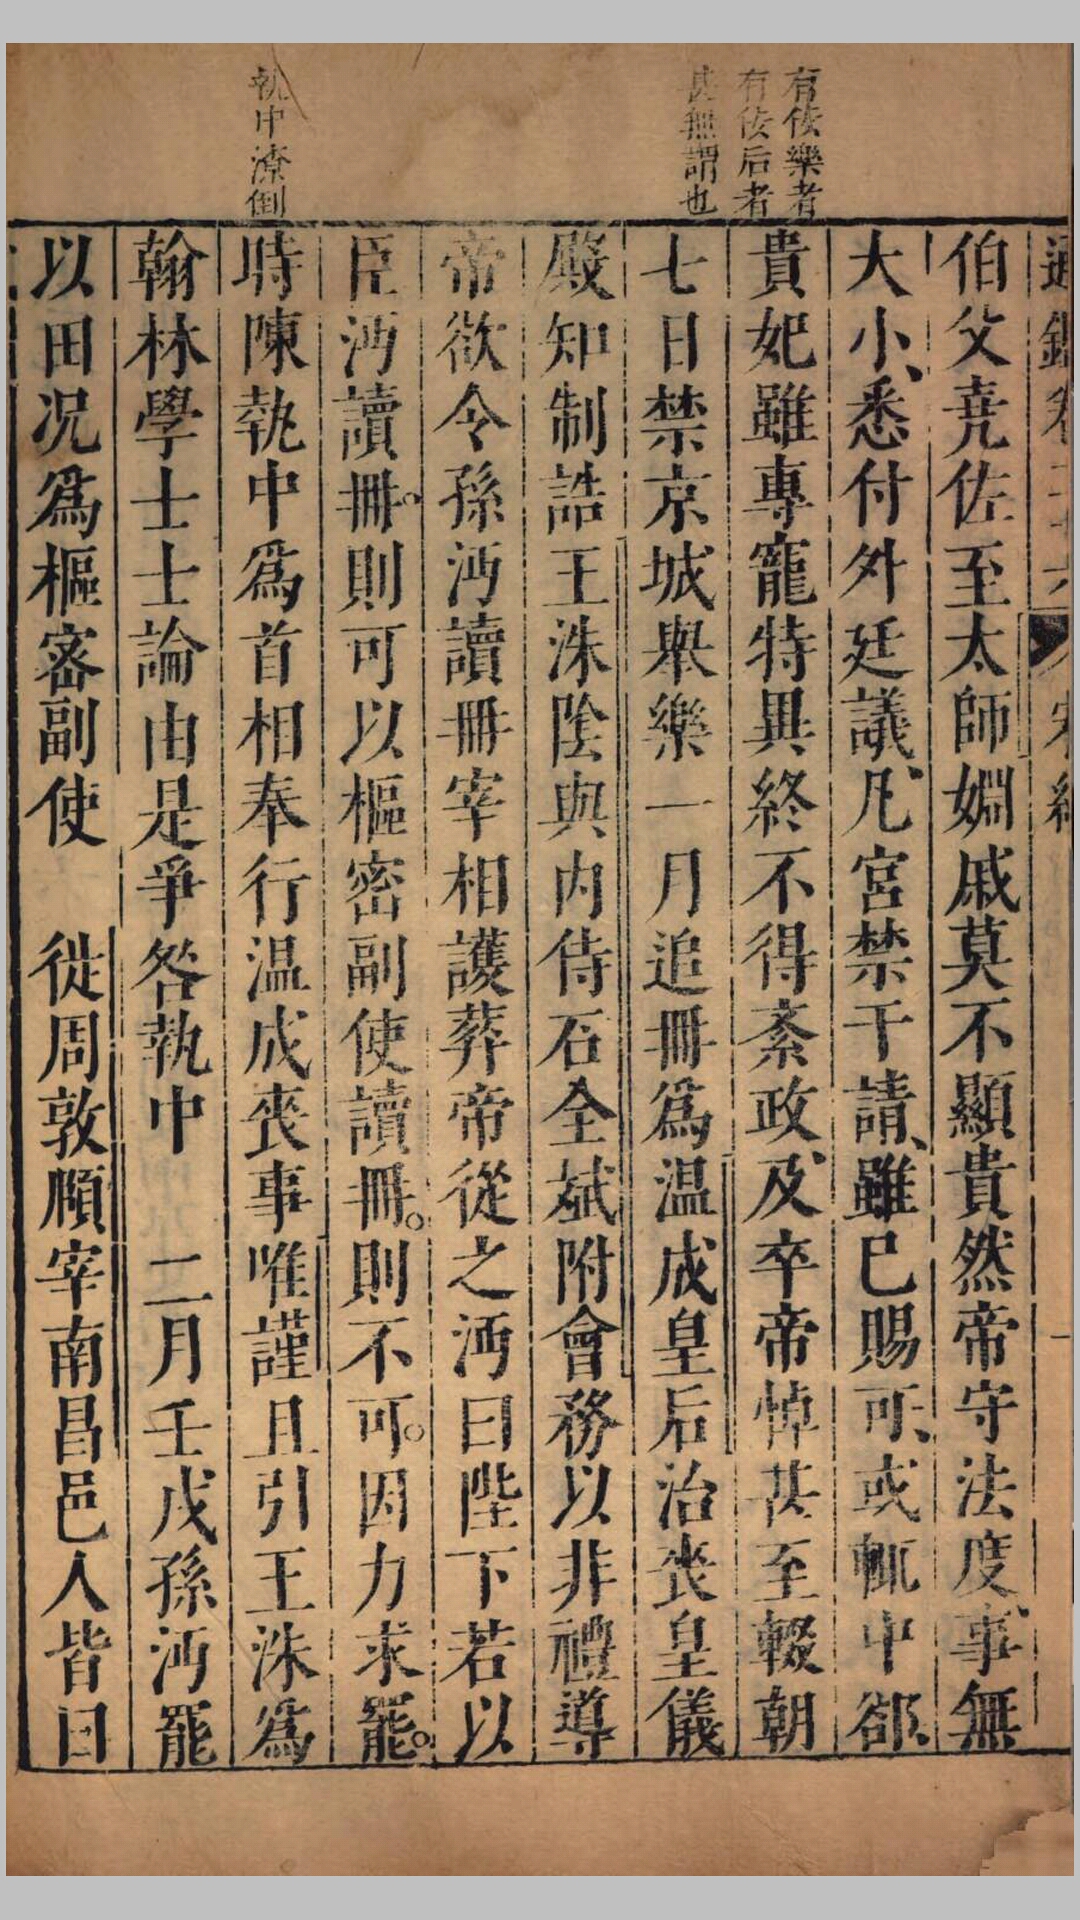 有佞樂者
有佞后者
甚無謂也
執中潦倒
伯父堯佐至太師婣戚莫不顯貴然帝守法度事無
大小悉付外廷議凡宮禁干請雖巳賜可或輒中郤
貴妃雖專寵特異終不得紊政及卒帝悼甚至輟朝
七日禁京城舉樂一月追冊爲温成皇后治喪皇儀
殿知制誥王洙陰與內侍石全斌附會務以非禮導
帝欲令孫沔讀冊宰相護葬帝從之沔曰陛下若以
臣沔讀冊則可以樞密副使讀冊則不可因力求罷
時陳執中爲首相奉行温成喪事唯謹且引王洙爲
翰林學士士論由是爭咎執中　二月壬戌孫沔罷
以田况爲樞密副使　徙周敦頤宰南昌邑人皆曰